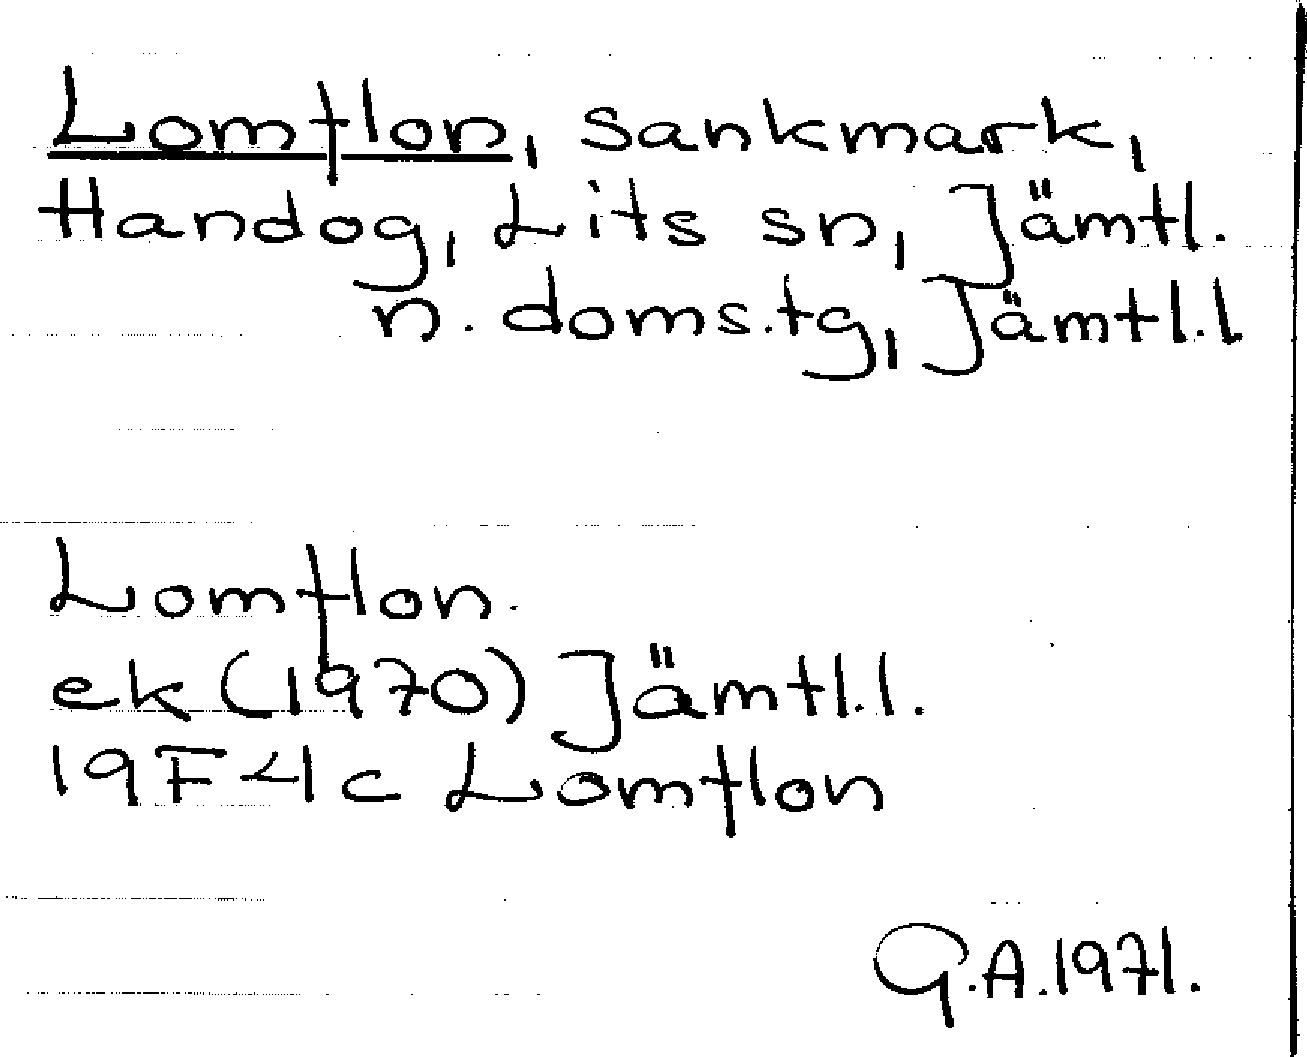 Lomflon, sankmark,
Handog, Lits sn, Jämtl.
n. doms.tg, Jämtl.l
Lomflon.
ek (1970) Jämtl.l.
19F4c Lomflon
G.A.1971.